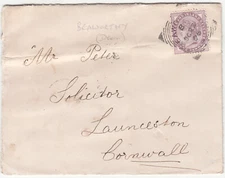 Mr Peter
Solicitor
Launceston
Cornwall